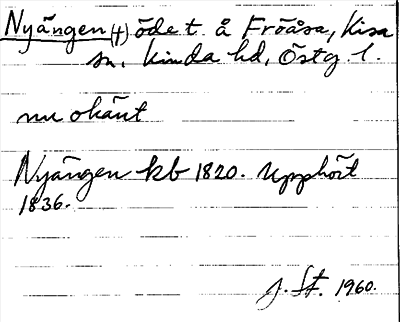 Nyängen (†) öde t. å Fröåsa, Kisa
sn, Kinda hd, Östg. l.
nu okänt
Nyängen kb 1820. Upphört
1836.
J. St. 1960.